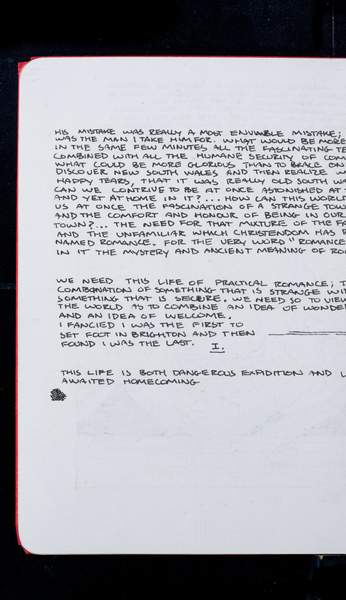 HIS MISTAKE WAS REALLY A MOST ENVIABLE MISTAKE;
WAS THE MAN I TAKE HIM FOR. WHAT WOULD BE MORE
IN THE SAME FEW MINUTES ALL THE FASCINATING TE
COMBINED WITH ALL THE HUMANE SECURITY OF COM
WHAT COULD BE MORE GLORIOUS THAN TO BRACE ON
DISCOVER NEW SOUTH WALES AND THEN REALIZE W
HAPPY TEARS, THAT IT WAS REALLY OLD SOUTH WA
CAN WE CONTRIVE TO BE AT ONCE ASTONISHED AT
AND YET AT HOME IN IT?... HOW CAN THIS WORL
US AT ONCE THE FASCINATION OF A STRANGE TOW
AND THE COMFORT AND HONOUR OF BEING IN OUR
TOWN?... THE NEED FOR THAT MIXTURE OF THE FA
AND THE UNFAMILIAR WHICH CHRISTENDOM HAS R
NAMED ROMANCE. FOR THE VERY WORD "ROMANCE
IN IT THE MYSTERY AND ANCIENT MEANING OF RO
WE NEED THIS LIFE OF PRACTICAL ROMANCE; T
COMBINATION OF SOMETHING THAT IS STRANGE WIT
SOMETHING THAT IS SECURE. WE NEED SO TO VIEW
THE WORLD AS TO COMBINE AN IDEA OF WONDE
AND AN IDEA OF WELCOME.
I FANCIED I WAS THE FIRST TO
SET FOOT IN BRIGHTON AND THEN
FOUND I WAS THE LAST. I.
THIS LIFE IS BOTH DANGEROUS EXPIDITION AND
AWAITED HOMECOMING